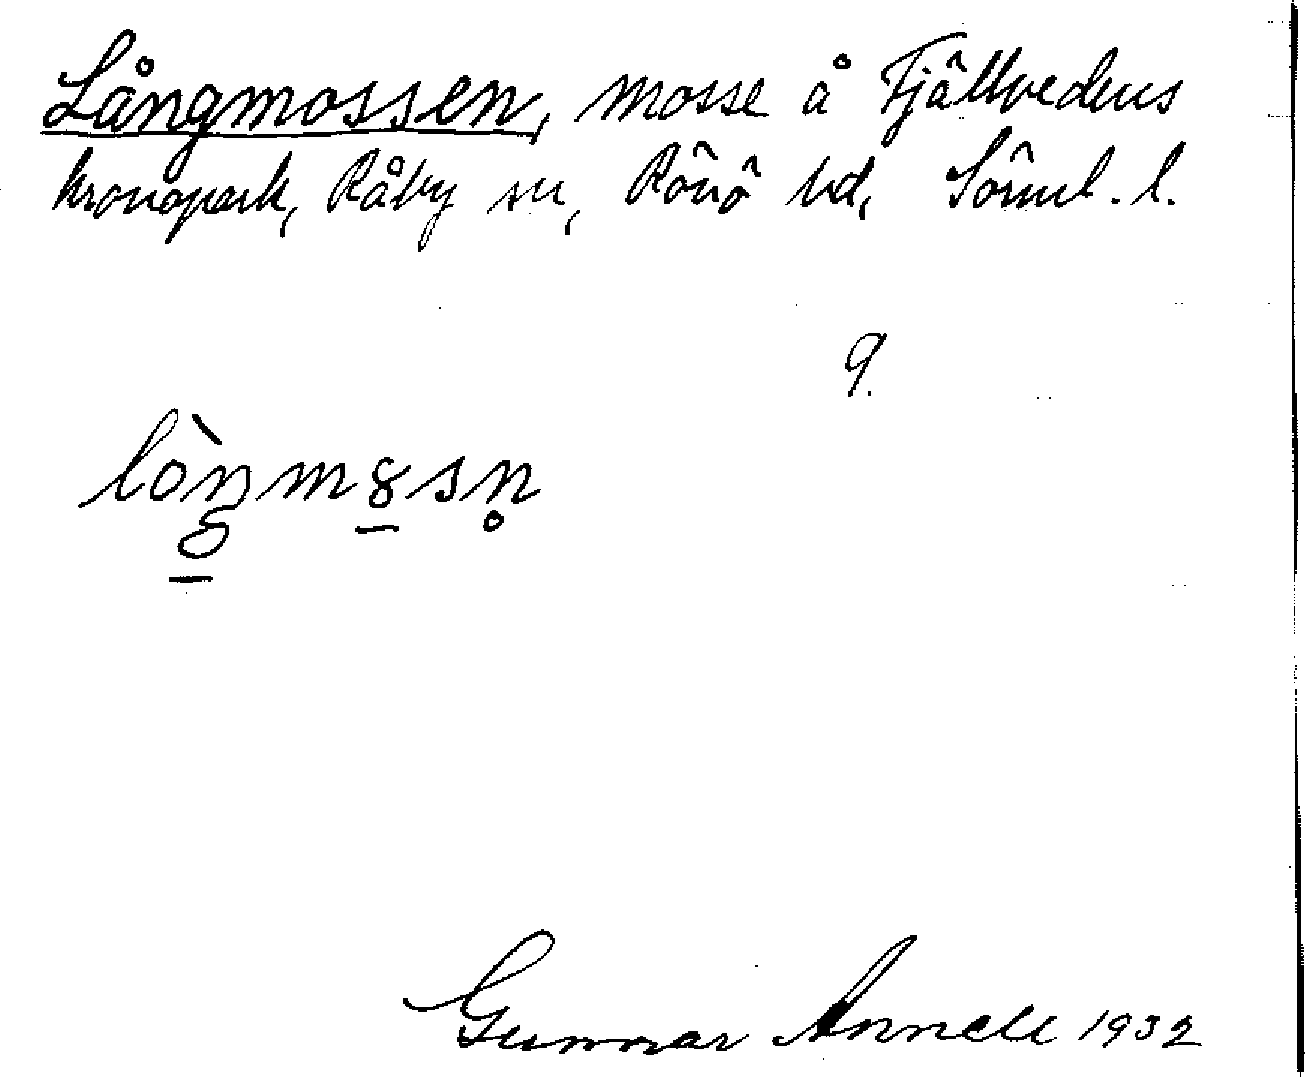 Långmossen, mosse å Fjällvedens
kronopark, Råby sn, Rönö hd, Sörml. l.
9.
Gunnar Annell 1932